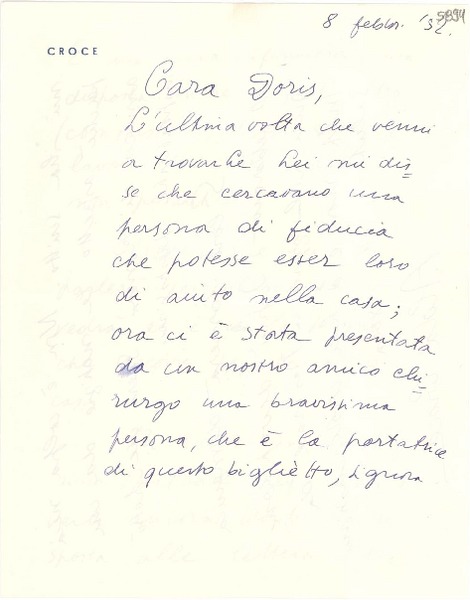 5894
8 febbr. '52.
CROCE
Cara Doris,
L'ultima volta che venni
a trovarLe Lei mi dis=
se che cercavano una
persona di fiducia
che potesse esser loro
di aiuto nella casa;
ora ci è stata presentata
da un nostro amico chi=
rurgo una bravissima
persona, che è la portatrice
di questo biglietto, signora